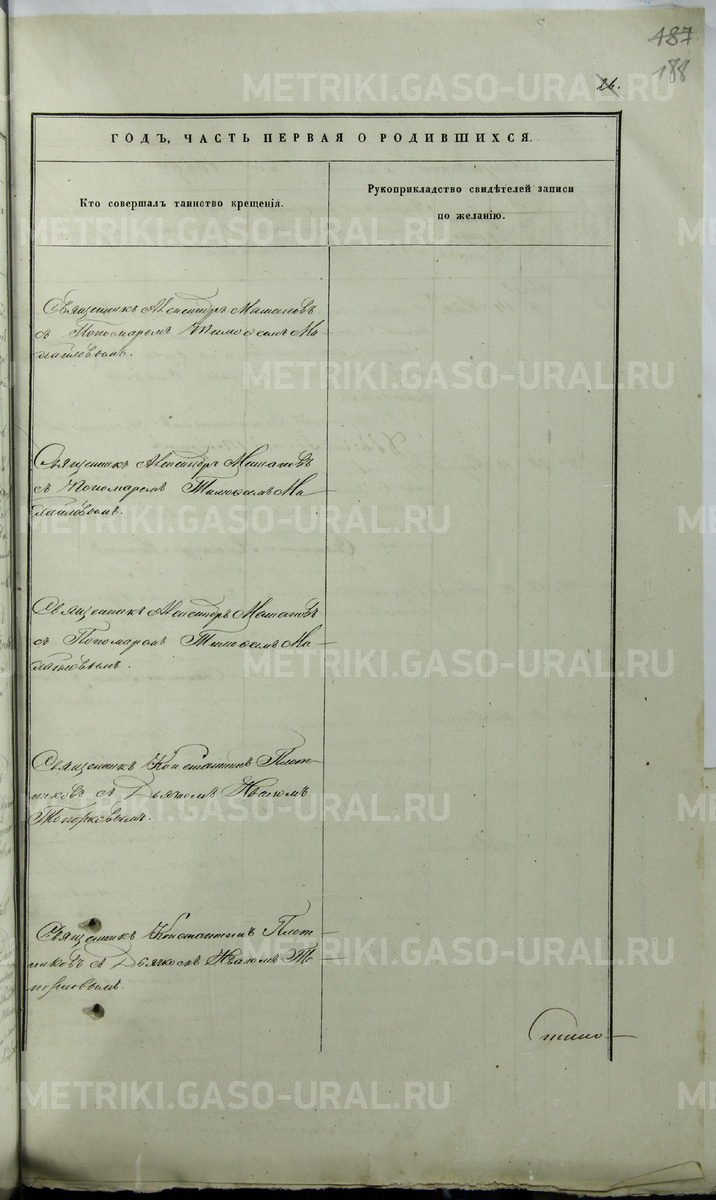 187
188
26.
ГОДЪ, ЧАСТЬ ПЕРВАЯ О РОДИВШИХСЯ.
Кто совершалъ таинство крещенія.
Рукоприкладство свидѣтелей записи
по желанію.
Священникъ Александръ
съ Пономаремъ Тимоѳеемъ Ми
хайловымъ.
Священникъ Александръ
съ Пономаремъ Тимоѳеемъ Ми
хайловымъ.
Священникъ Александръ
съ Пономаремъ Тимоѳеемъ Ми
хайловымъ.
Священникъ Константинъ Плот
никовъ съ Дьячкомъ Иваномъ
Топорковымъ.
Священникъ Константинъ Плот
никовъ съ Дьячкомъ Иваномъ То
порковымъ.
METRIKI.GASO-URAL.RU